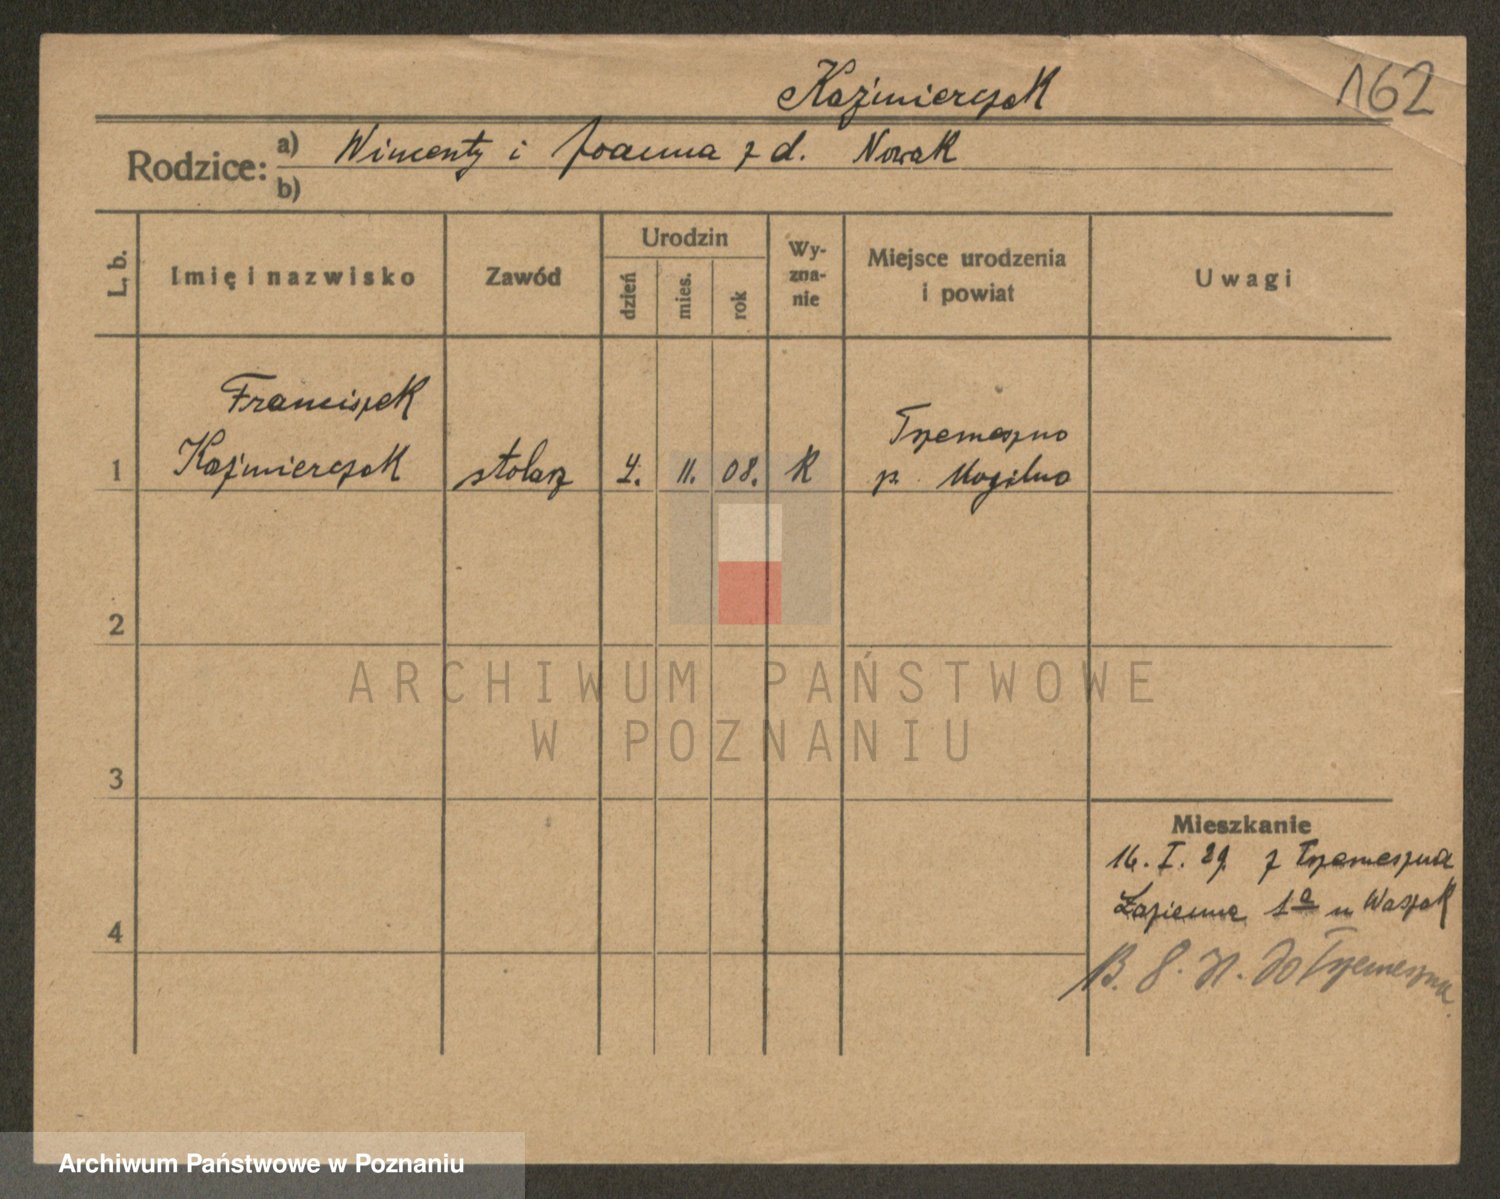 Kaźmierczak
162
Rodzice: a) Wincenty i Joanna z d. Nowak
b)
L. b.
Imię i nazwisko
Zawód
Urodzin
dzień
mies.
rok
Wy-
zna-
nie
Miejsce urodzenia
i powiat
Uwagi
Franciszek
Trzemeszno
1 Kaźmierczak stolarz 4. 11. 08. K p. Mogilno
2
ARCHIWUM PAŃSTWOWE
W POZNANIU
3
Mieszkanie
16. I. 29. z Trzemeszna
Łazienna 1a u Waszak
4
do Trzemeszna
Archiwum Państwowe w Poznaniu